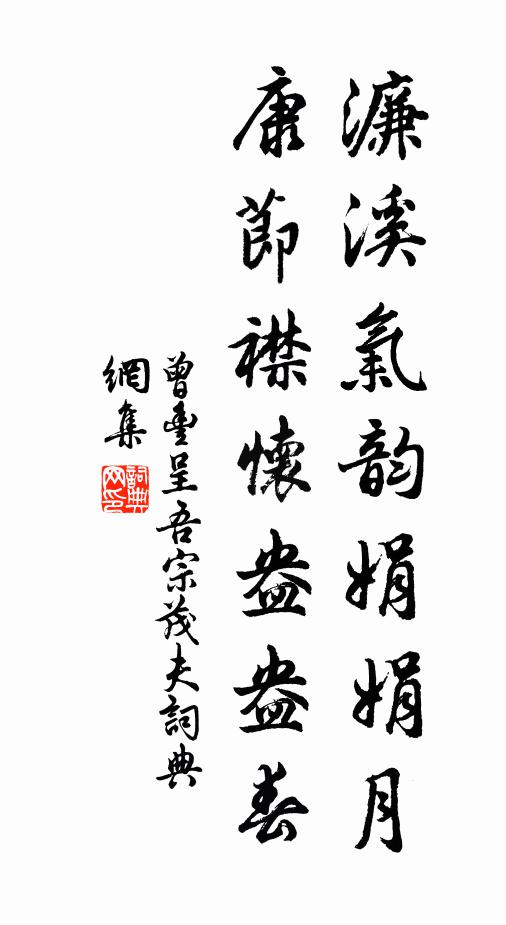 濂溪氣韵娟娟月
康節襟懷盎盎春
曾豐呈吾宗茂夫詞典
網集
詞典网印